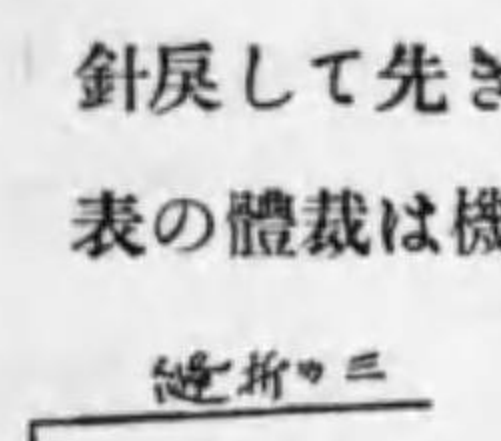 針戻して先き
表の體裁は機
三ツ折縫